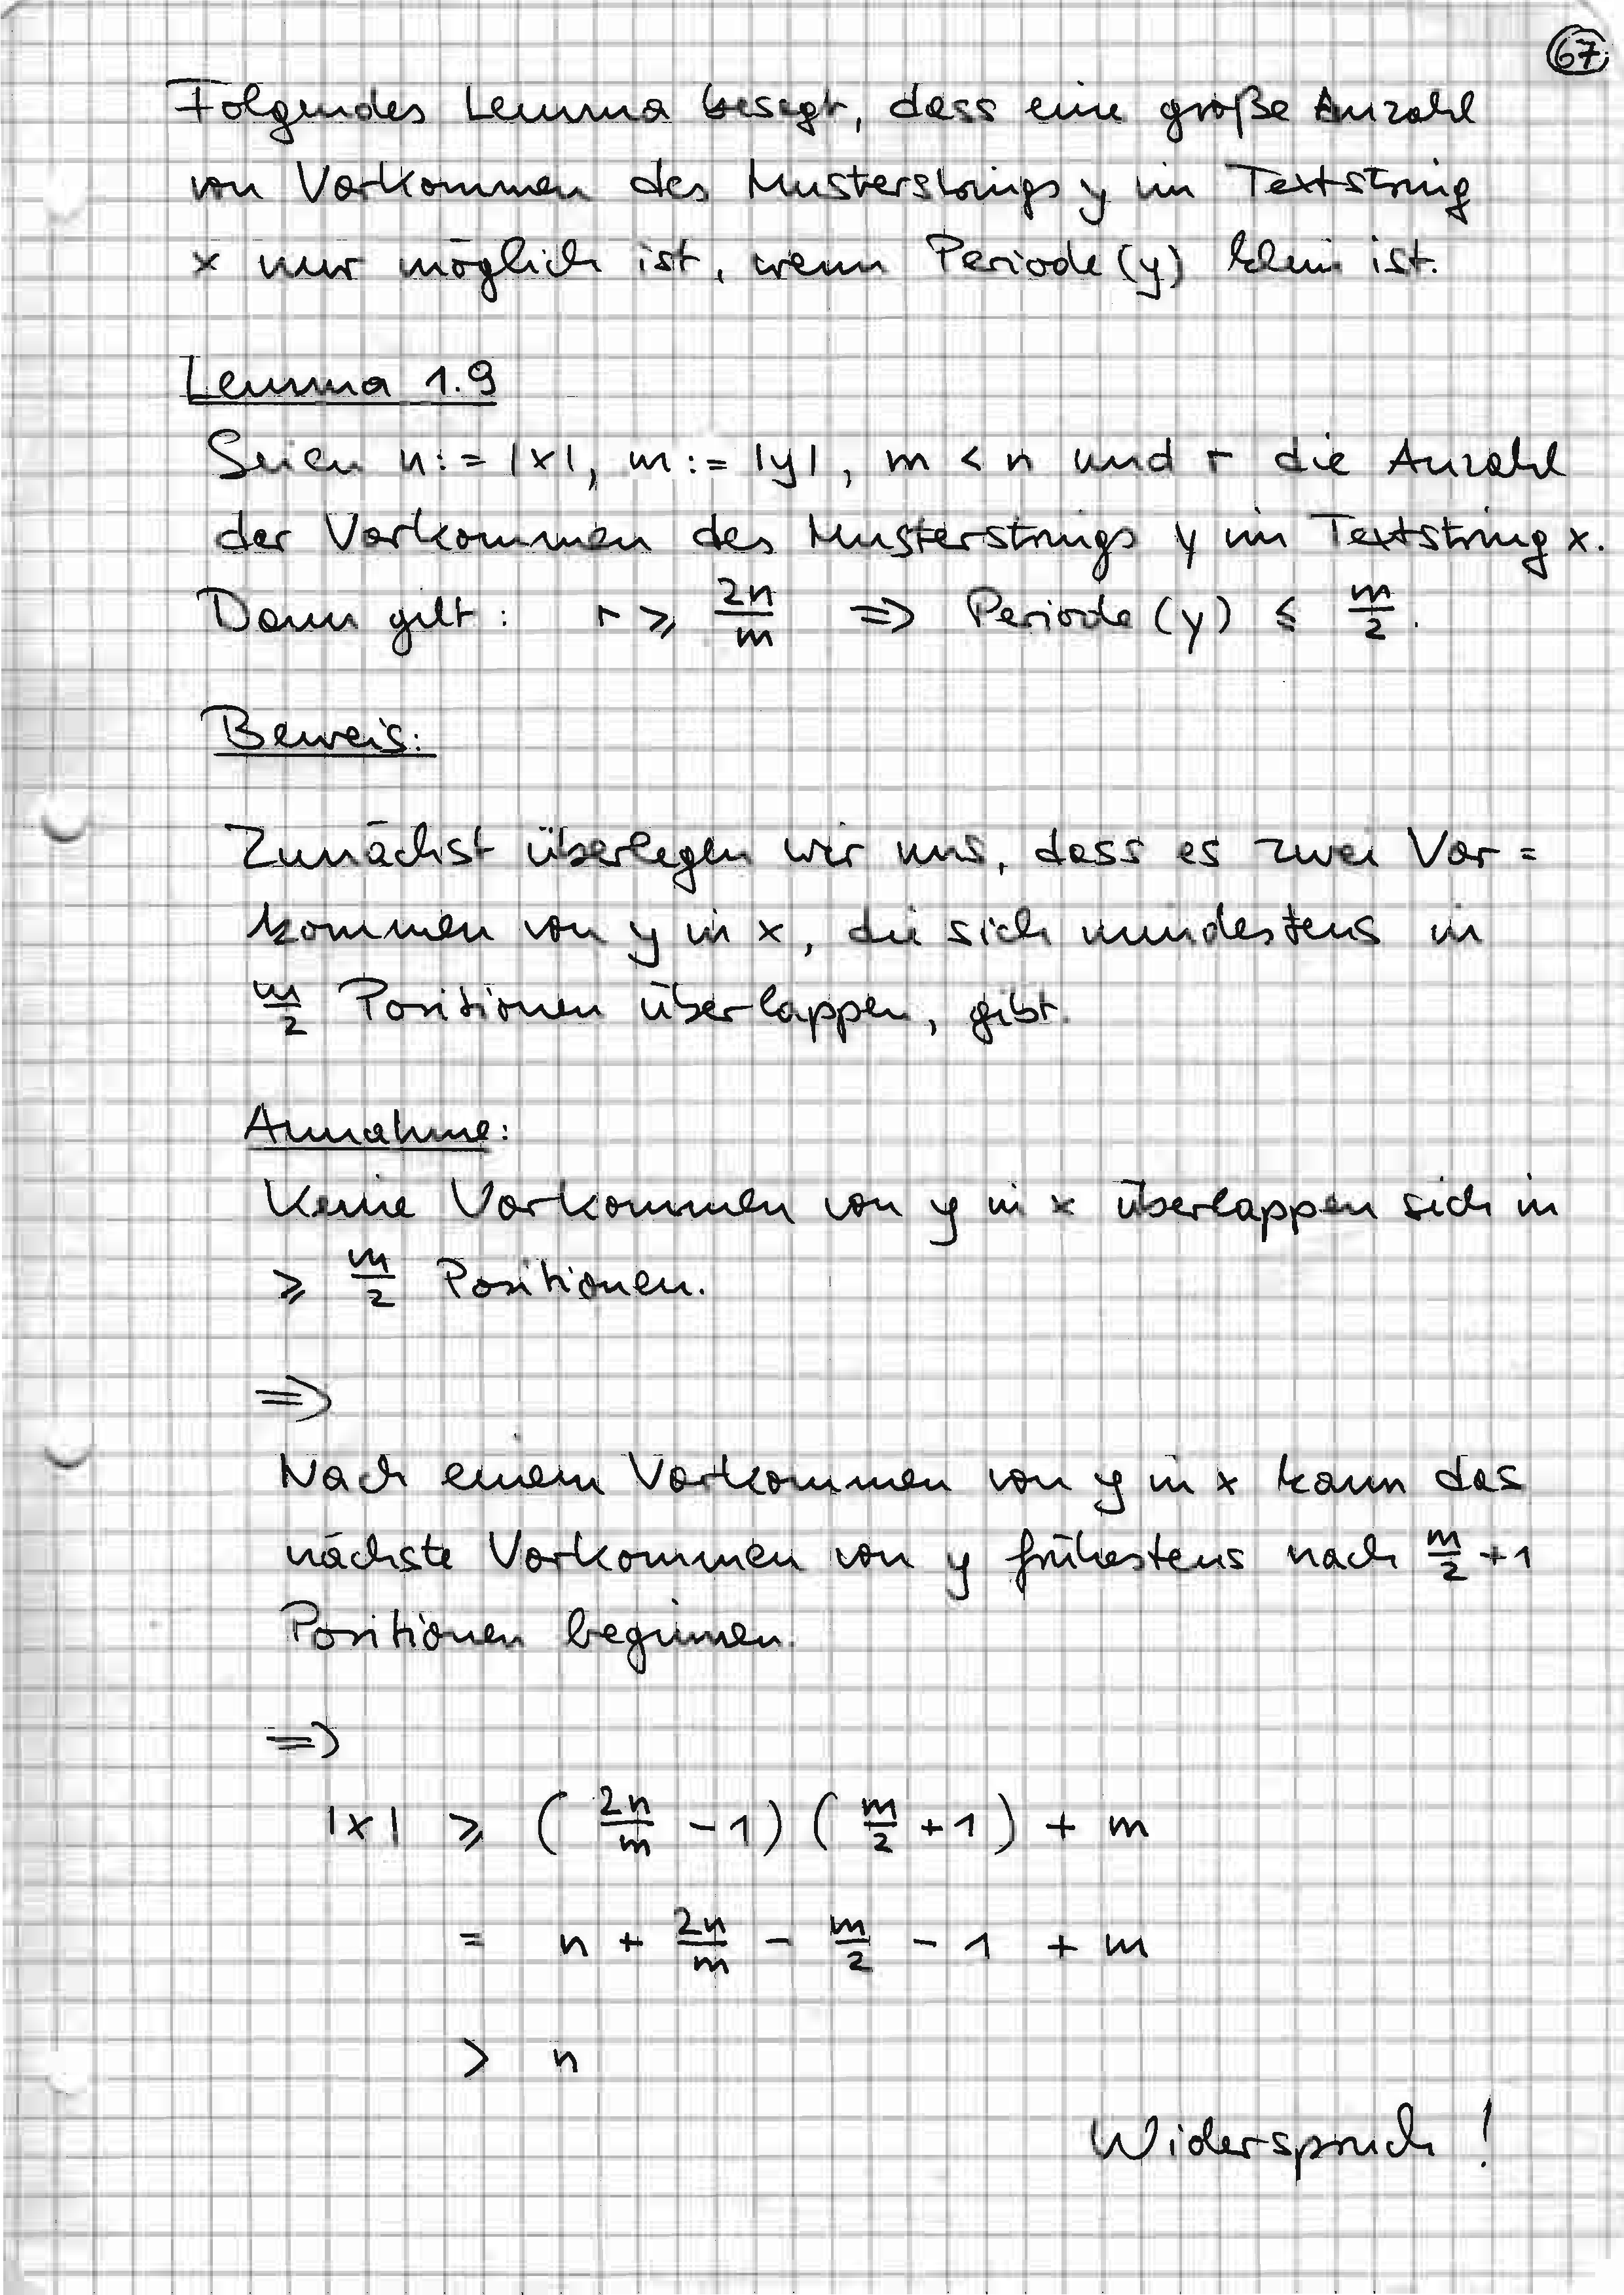 67
Folgendes Lemma besagt, dass eine große Anzahl
von Vorkommen des Musterstrings y im Textstring
x nur möglich ist, wenn Periode(y) klein ist.
Lemma 1.9
Seien n := |x|, m := |y|, m < n und r die Anzahl
der Vorkommen des Musterstrings y im Textstring x.
Dann gilt: r ≥ 2n/m ⇒ Periode(y) ≤ m/2.
Beweis:
Zunächst überlegen wir uns, dass es zwei Vor=
kommen von y in x, die sich mindestens in
m/2 Positionen überlappen, gibt.
Annahme:
Keine Vorkommen von y in x überlappen sich in
≥ m/2 Positionen.
⇒
Nach einem Vorkommen von y in x kann das
nächste Vorkommen von y frühestens nach m/2 + 1
Positionen beginnen.
⇒
|x| ≥ (2n/m - 1) (m/2 + 1) + m
= n + 2n/m - m/2 - 1 + m
> n
Widerspruch!